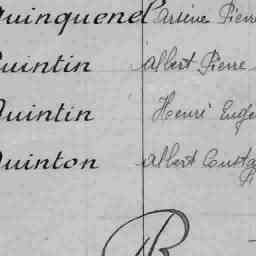 Quinquenel Arsène Pierre
Quintin Albert Pierre
Quintin Henri Eugè
Quinton Albert Consta
R